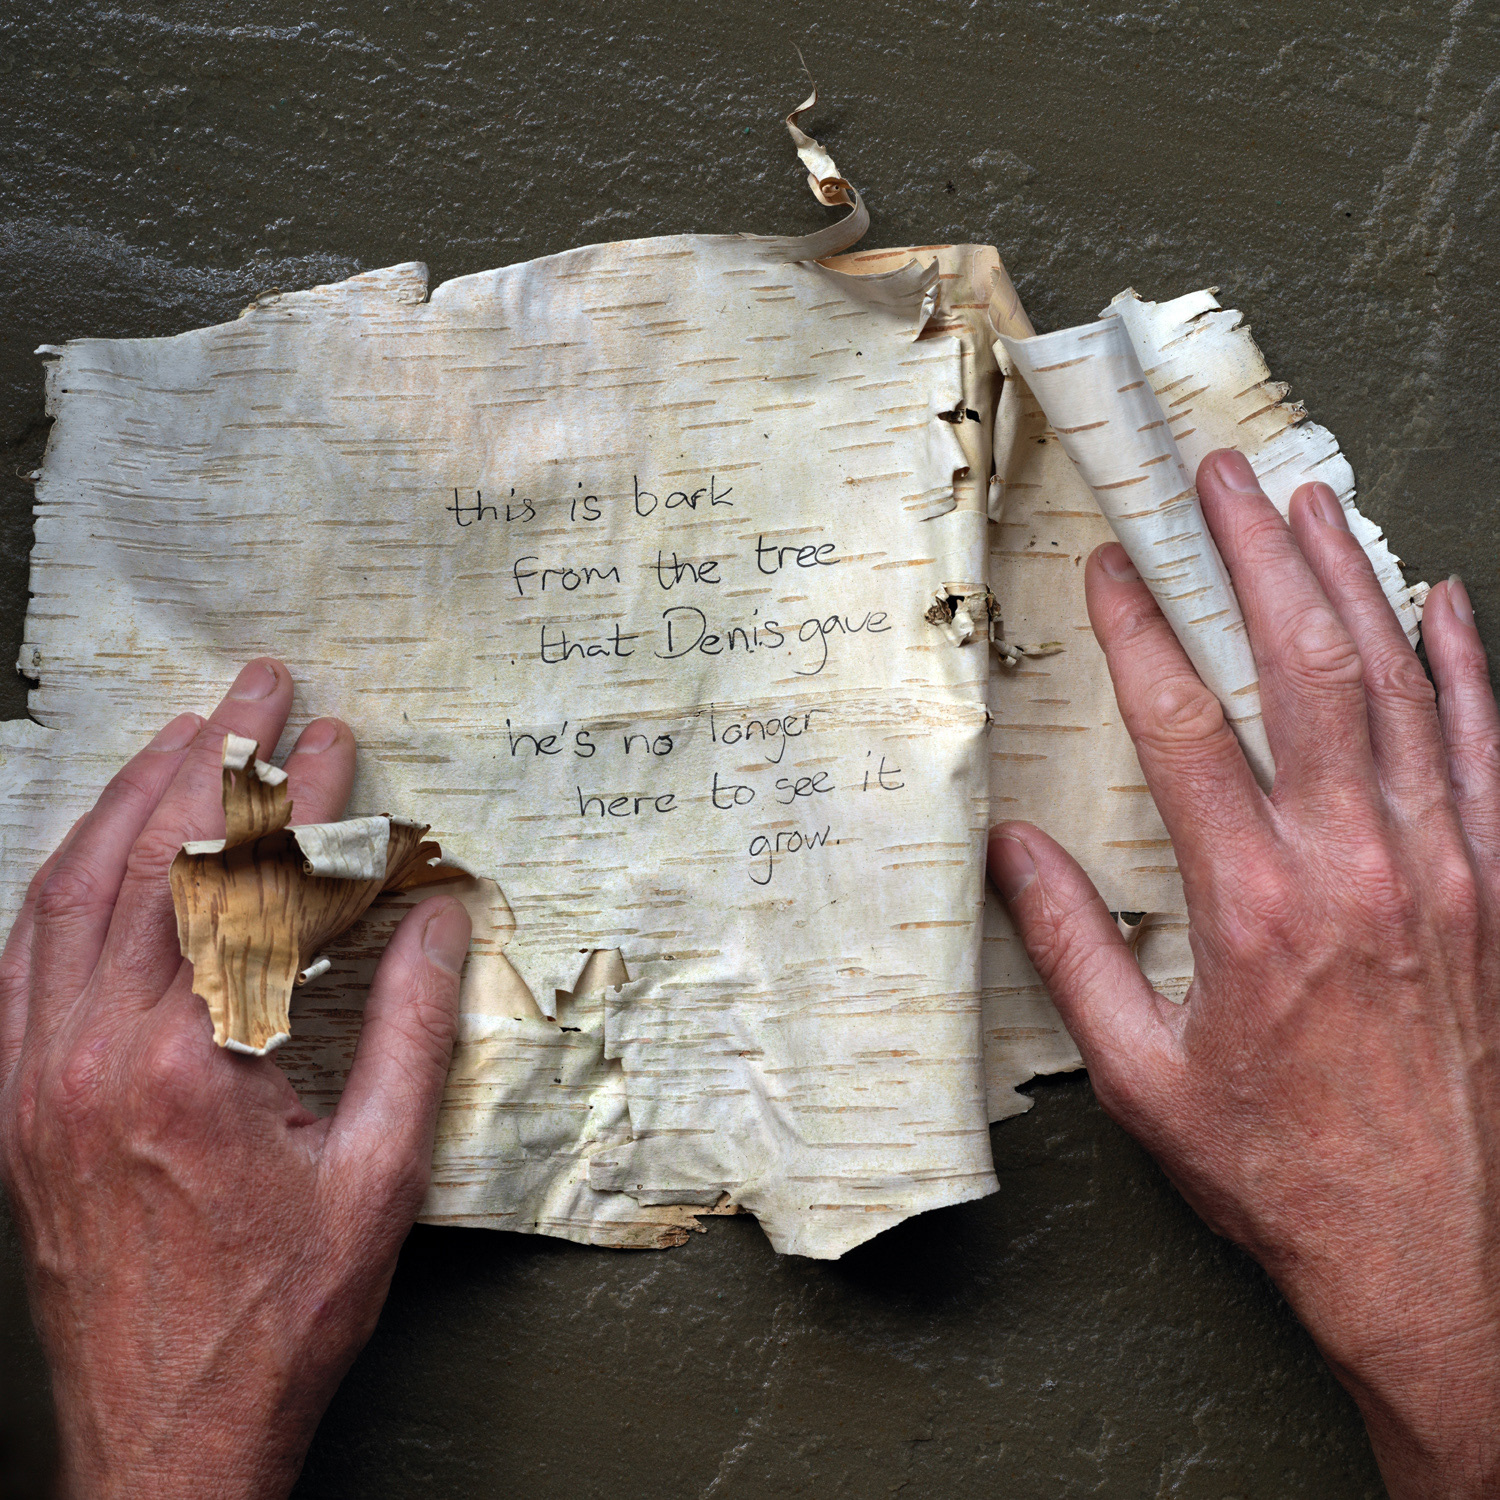 this is bark
from the tree
that Denis gave
he's no longer
here to see it
grow.